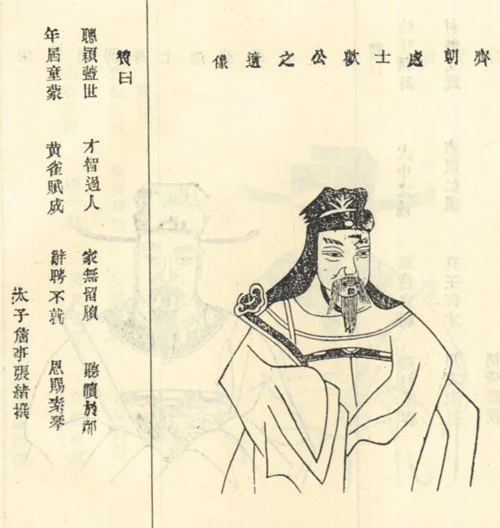 齊朝處士歡公之遺像
贊曰
聰穎蓋世 才智過人 家無留牘 聽讀於鄰
年居童蒙 黃雀賦成 辭聘不就 恩賜素琴
太子詹事張緒撰